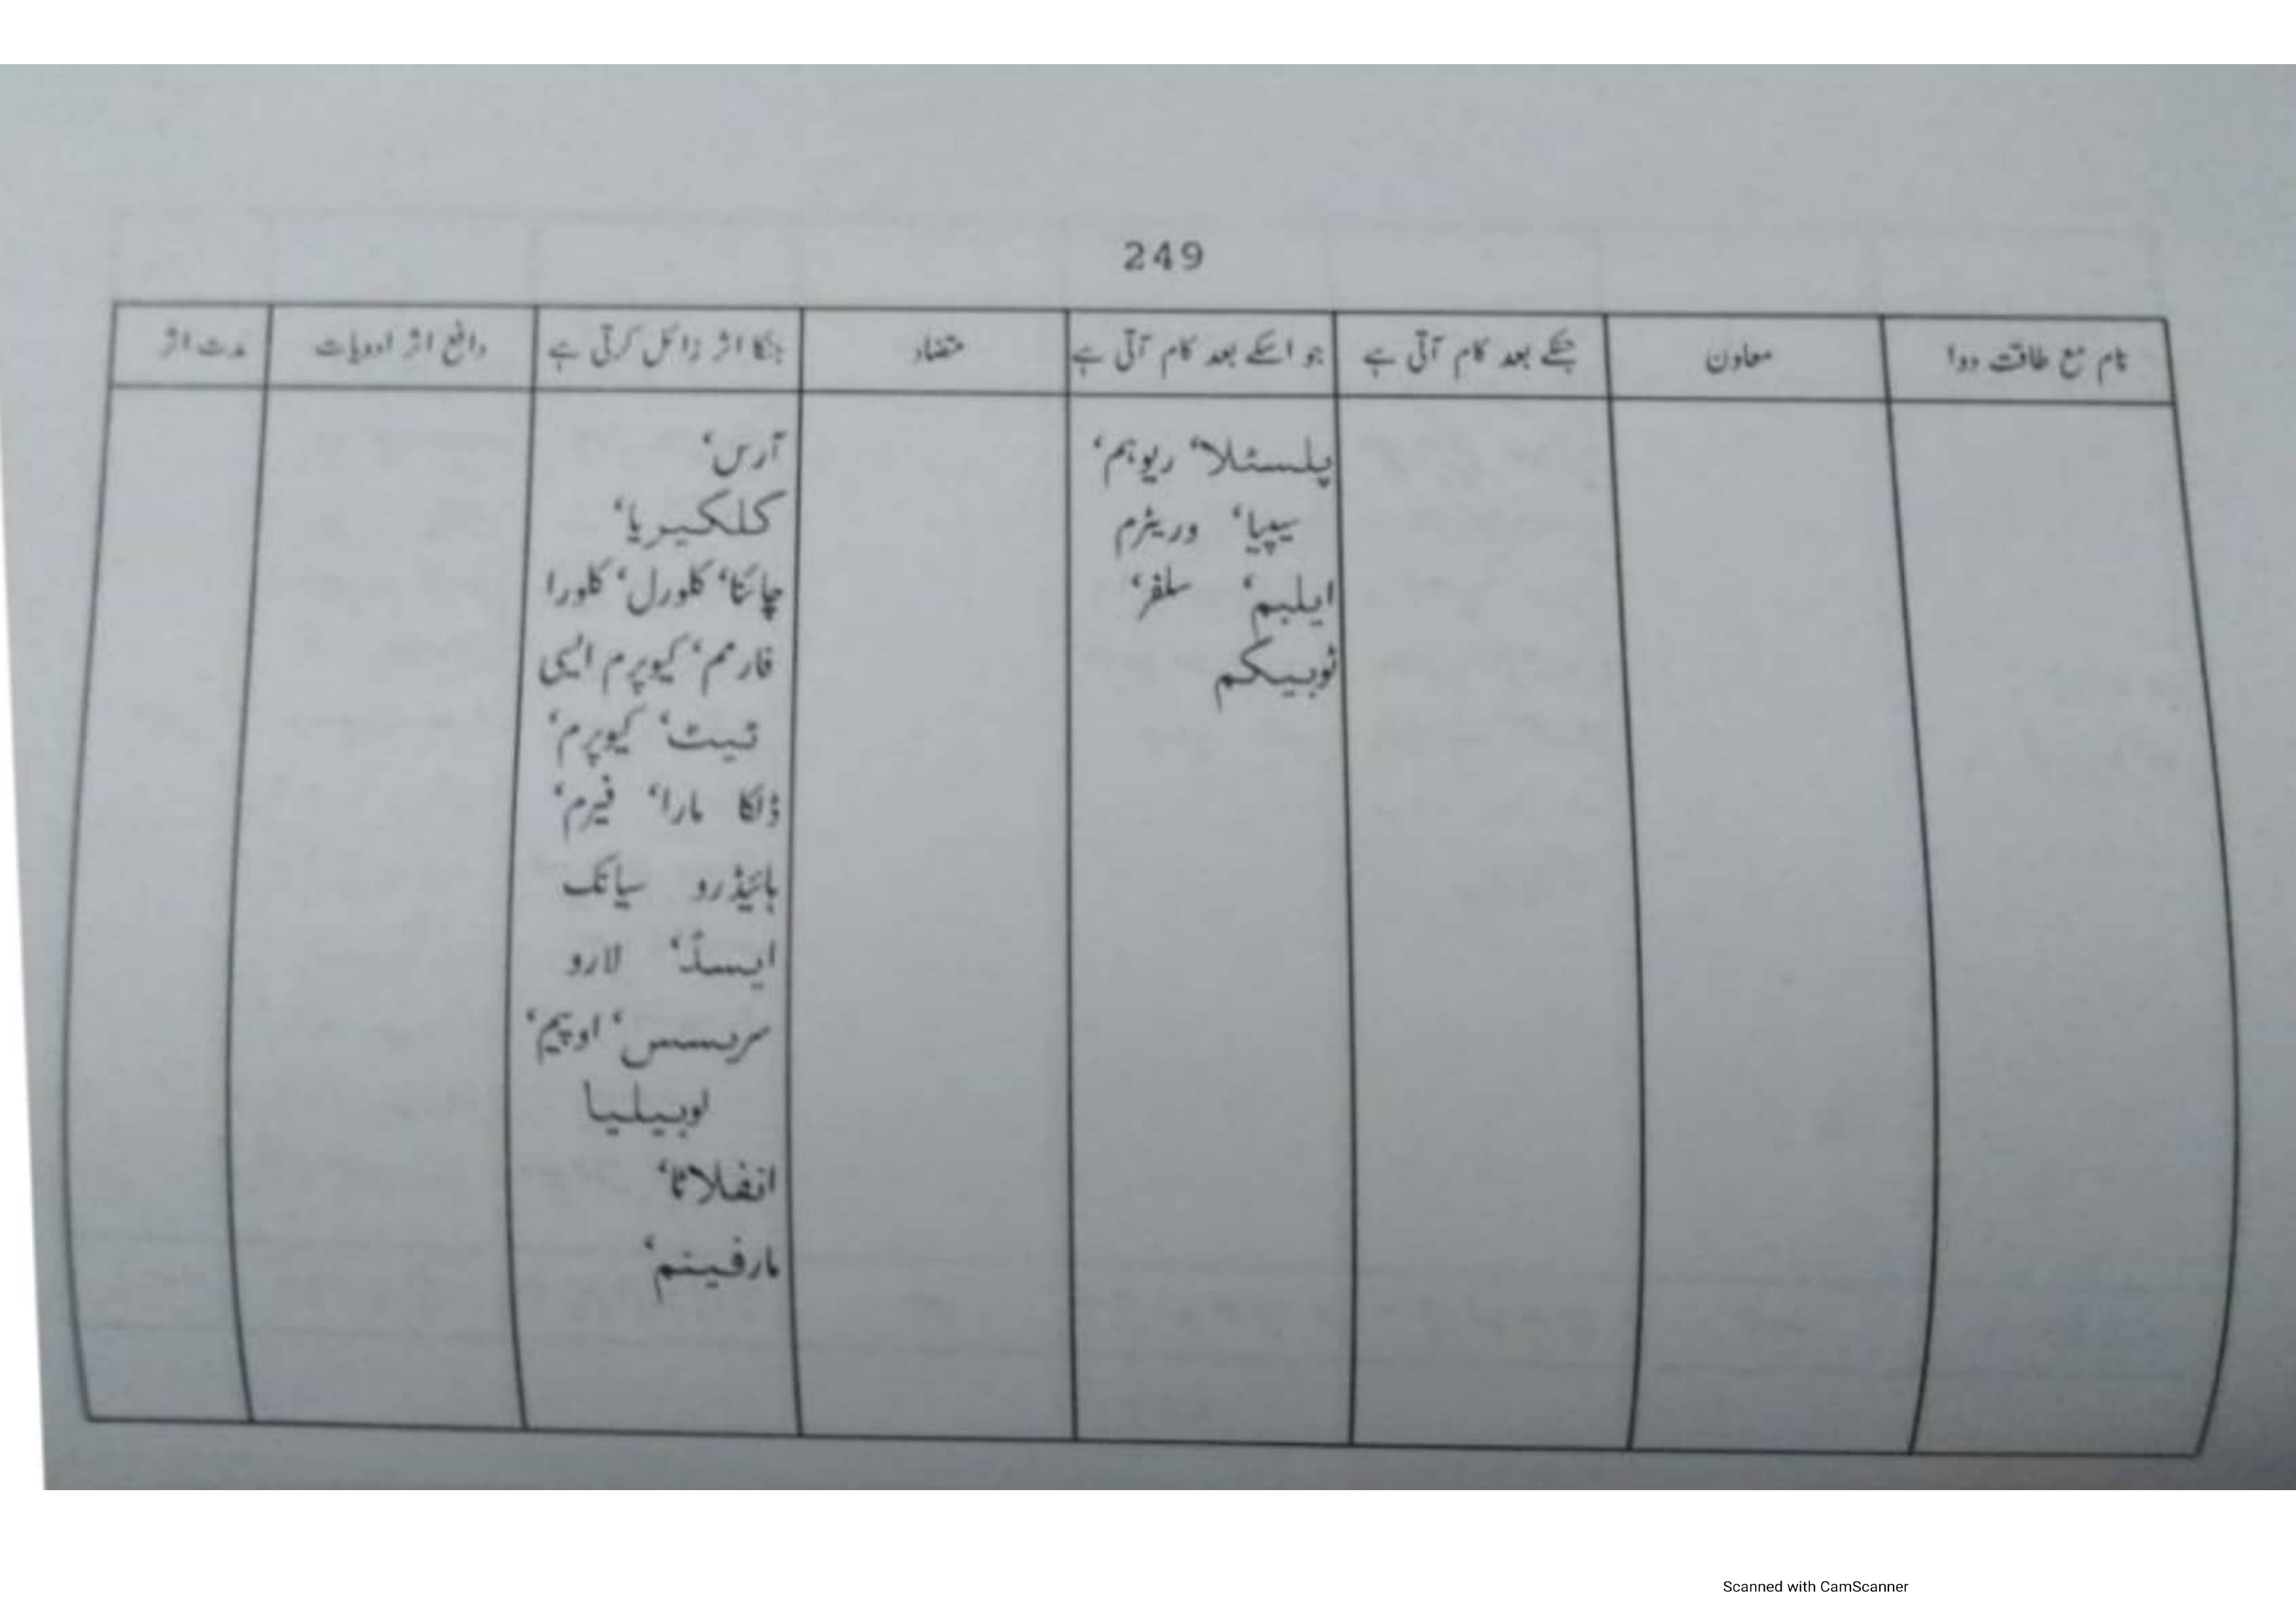 249
نام مع طاقت دوا	معاون	جنکے بعد کام آتی ہے	جو اسکے بعد کام آتی ہے	متضاد	جنکا اثر زائل کرتی ہے	دافع اثر ادویات	مدت اثر
پلسٹلا‘ ریوہم‘
سیپیا‘ وریٹرم
ایلبم‘ سلفر‘
ٹوبیکم
آرس‘
کلکیریا‘
چائنا‘ کلورل‘ کلورا
فارمم‘ کیوپرم ایسی
ٹیٹ‘ کیوپرم‘
ڈلکا مارا‘ فیرم‘
ہائیڈرو سیانک
ایسڈ‘ لارو
سریسس‘ اوپیم‘
لوبیلیا
انفلاٹا‘
مارفینم‘
Scanned with CamScanner